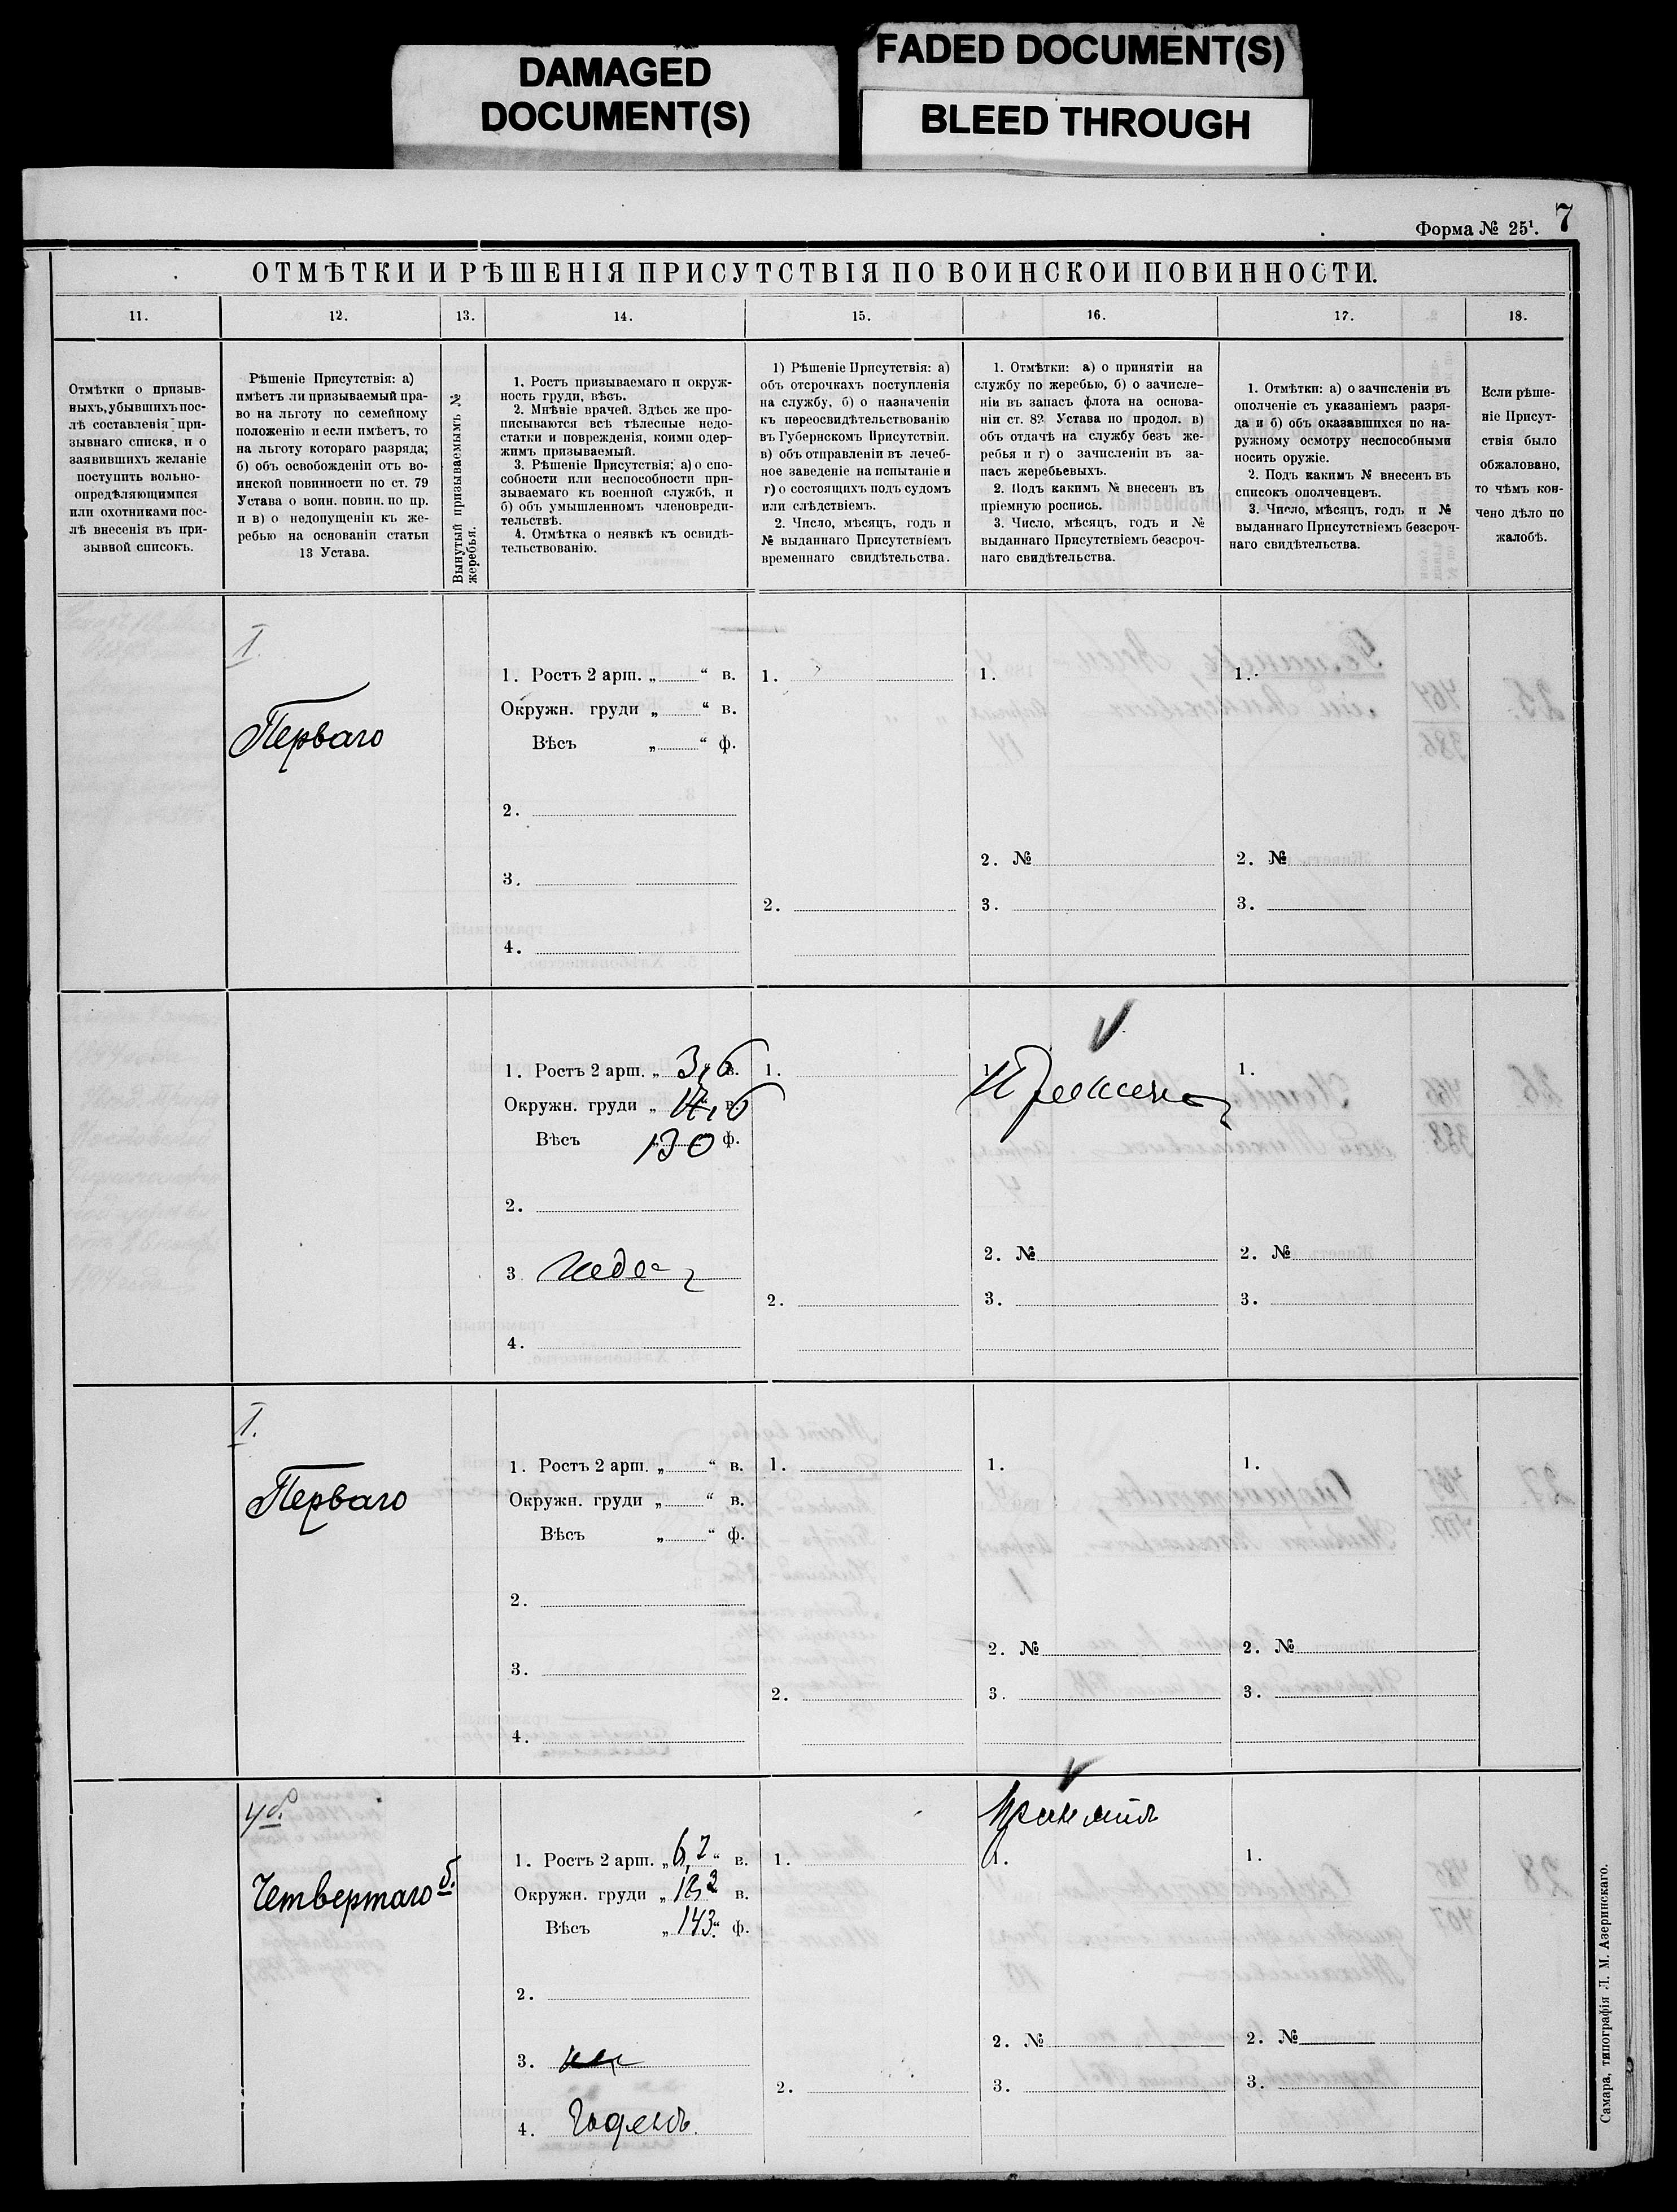 DAMAGED
DOCUMENT(S)
FADED DOCUMENT(S)
BLEED THROUGH
Форма № 25¹. 7
ОТМѢТКИ И РѢШЕНІЯ ПРИСУТСТВІЯ ПО ВОИНСКОИ ПОВИННОСТИ.
11. 12. 13. 14. 15. 16. 17. 18.
Отмѣтки о призыв-
ныхъ, убывшихъ пос-
лѣ составленія при-
зывнаго списка, и о
заявившихъ желаніе
поступить вольно-
опредѣляющимися
или охотниками пос-
лѣ внесенія въ при-
зывной списокъ.
Рѣшеніе Присутствія: а)
имѣетъ ли призываемый пра-
во на льготу по семейному
положенію и если имѣетъ, то
на льготу котораго разряда;
б) объ освобожденіи отъ во-
инской повинности по ст. 79
Устава о воин. повин. по пр.
и в) о недопущеніи къ же-
ребью на основаніи статьи
13 Устава.
Вынутый призываемымъ №
жеребья.
1. Ростъ призываемаго и окруж-
ность груди, вѣсъ.
2. Мнѣніе врачей. Здѣсь же про-
писываются всѣ тѣлесные недо-
статки и поврежденія, коими одер-
жимъ призываемый.
3. Рѣшеніе Присутствія: а) о спо-
собности или неспособности при-
зываемаго къ военной службѣ, и
б) объ умышленномъ членовреди-
тельствѣ.
4. Отмѣтка о неявкѣ къ освидѣ-
тельствованію.
1) Рѣшеніе Присутствія: а)
объ отсрочкахъ поступленія
на службу, б) о назначеніи
къ переосвидѣтельствованію
въ Губернскомъ Присутствіи.
в) объ отправленіи въ лечеб-
ное заведеніе на испытаніе и
г) о состоящихъ подъ судомъ
или слѣдствіемъ.
2. Число, мѣсяцъ, годъ и
№ выданнаго Присутствіемъ
временнаго свидѣтельства.
1. Отмѣтки: а) о принятіи на
службу по жеребью, б) о зачисле-
ніи въ запасъ флота на основа-
ніи ст. 82 Устава по продол. в)
объ отдачѣ на службу безъ же-
ребья и г) о зачисленіи въ за-
пасъ жеребьевыхъ.
2. Подъ какимъ № внесенъ въ
пріемную роспись.
3. Число, мѣсяцъ, годъ и №
выданнаго Присутствіемъ безсроч-
наго свидѣтельства.
1. Отмѣтки: а) о зачисленіи въ
ополченіе съ указаніемъ разря-
да и б) объ оказавшихся по на-
ружному осмотру неспособными
носить оружіе.
2. Подъ какимъ № внесенъ въ
списокъ ополченцевъ.
3. Число, мѣсяцъ, годъ и №
выданнаго Присутствіемъ безсроч-
наго свидѣтельства.
Если рѣше-
ніе Присут-
ствія было
обжаловано,
то чѣмъ кон-
чено дѣло по
жалобѣ.
I.
Перваго
1. Ростъ 2 арш. „ “ в. 1. 1. 1.
Окружн. груди „ “ в.
Вѣсъ „ “ ф.
2.
2. № 2. №
3.
2. 3. 3.
4.
1. Ростъ 2 арш. „ 3,6 в. 1. 1. 1.
Окружн. груди „ в.
Вѣсъ 130 ф.
2.
2. № 2. №
3
2. 3. 3.
4.
I.
Перваго
1. Ростъ 2 арш. „ “ в. 1. 1. 1.
Окружн. груди „ “ в.
Вѣсъ „ “ ф.
2.
2. № 2. №
3.
2. 3. 3.
4.
Принятъ
Четвертаго б.
1. Ростъ 2 арш. „ 6,2 “ в. 1. 1. 1.
Окружн. груди „ в.
Вѣсъ „ 143 “ ф.
2.
2. № 2. №
3.
2. 3. 3.
4. Годенъ.
Самара, типографія Л. М. Азеринскаго.